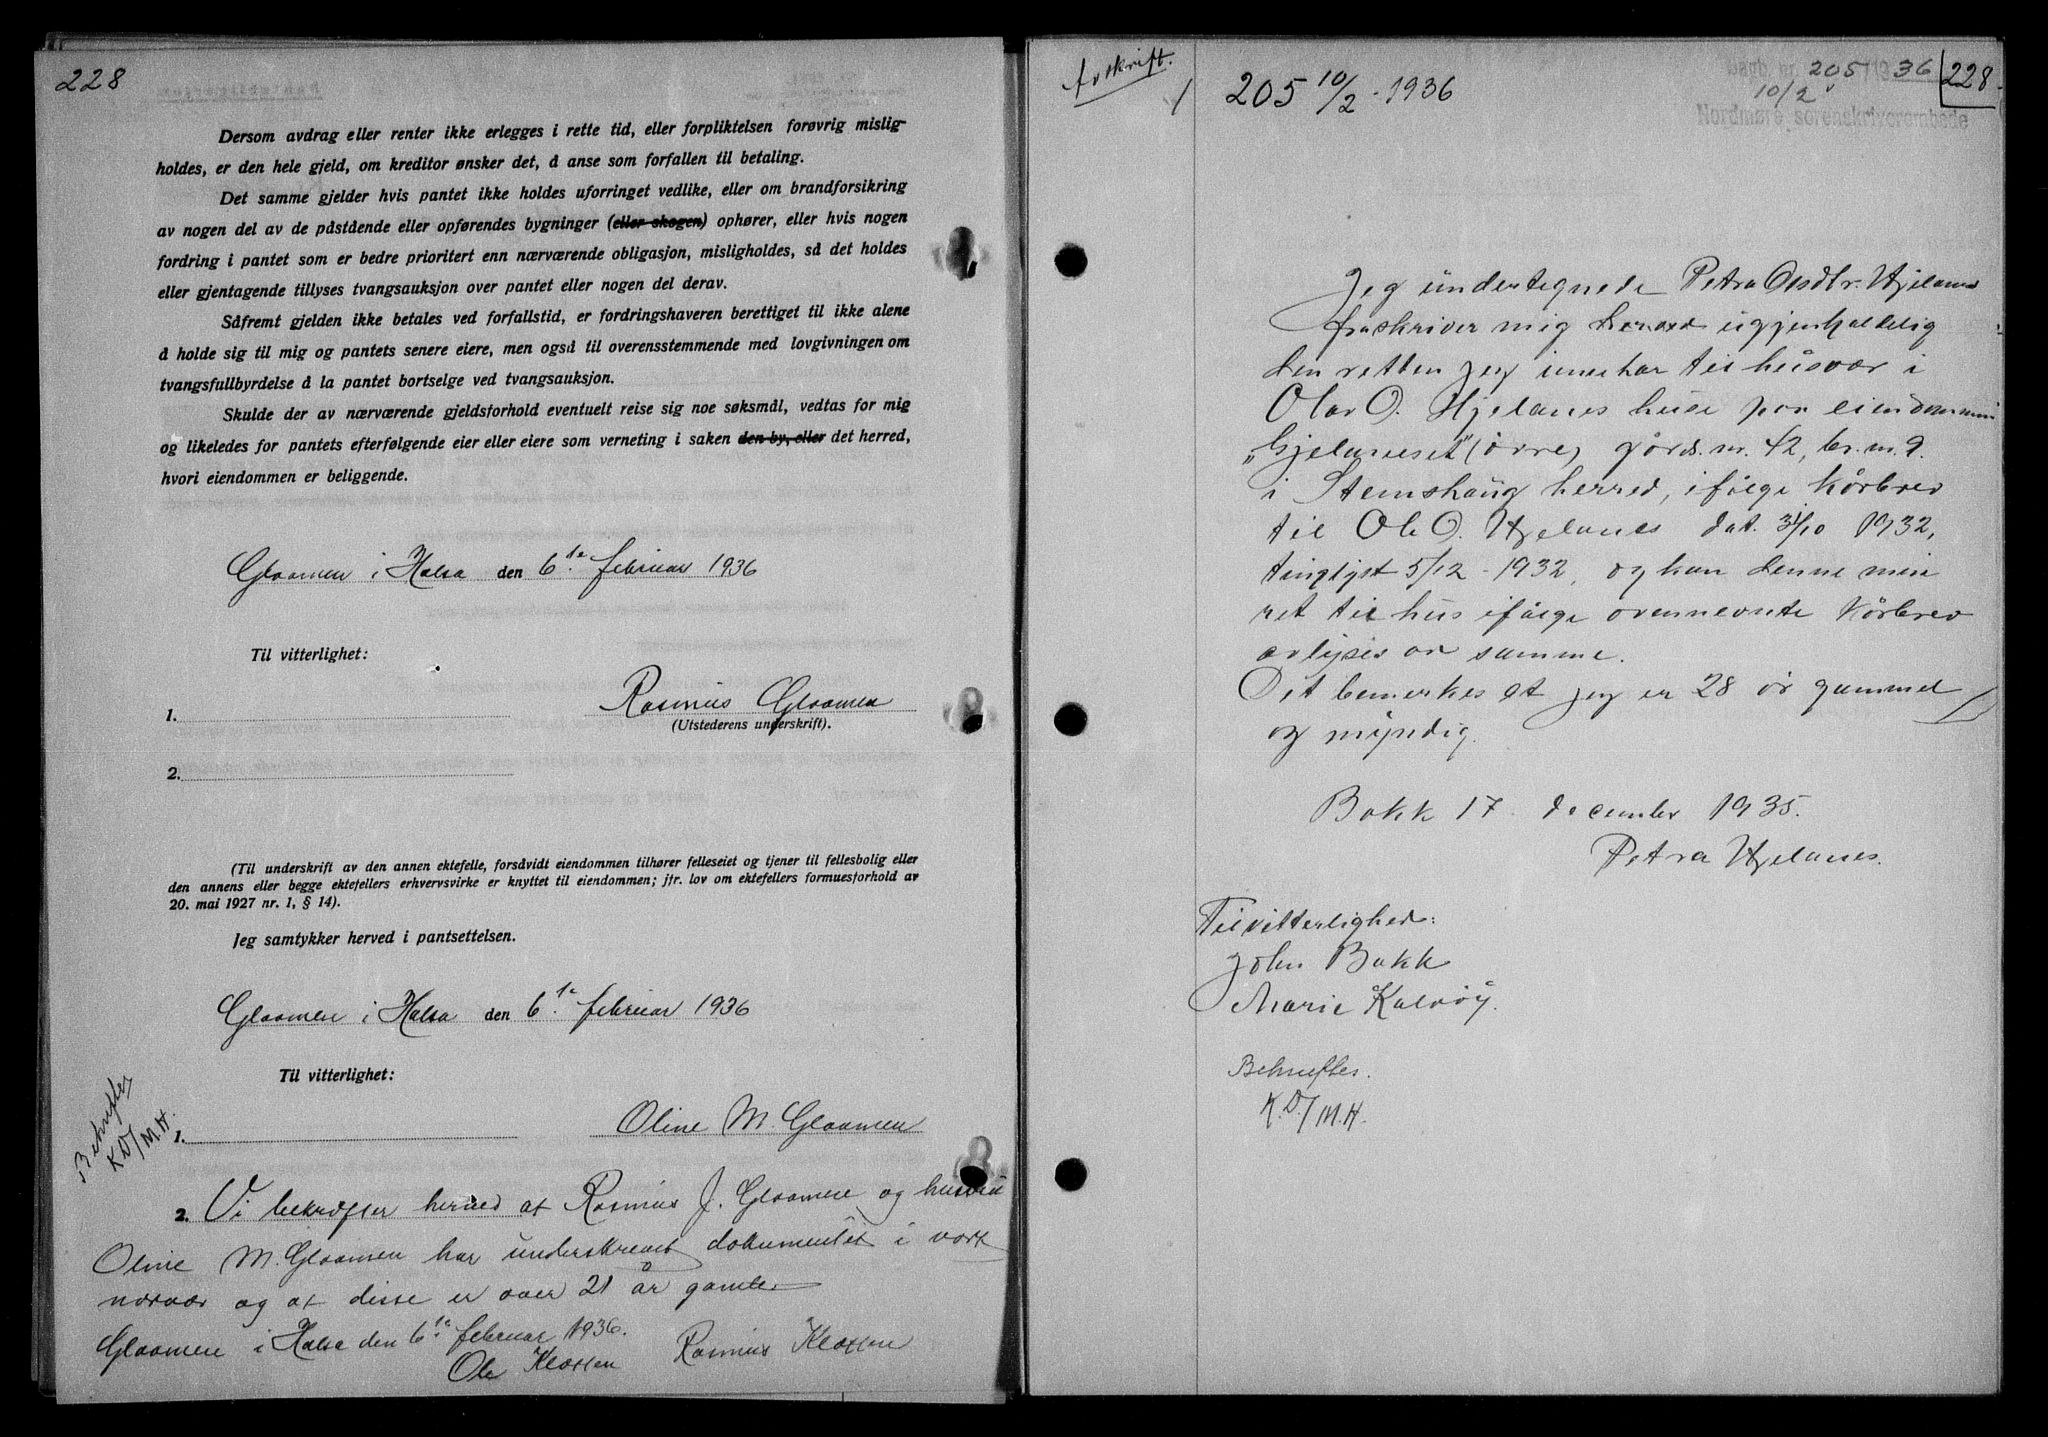 228
Dersom avdrag eller renter ikke erlegges i rette tid, eller forpliktelsen forøvrig mislig-
holdes, er den hele gjeld, om kreditor ønsker det, å anse som forfallen til betaling.
Det samme gjelder hvis pantet ikke holdes uforringet vedlike, eller om brandforsikring
av nogen del av de påstående eller opførendes bygninger (eller skogen) ophører, eller hvis nogen
fordring i pantet som er bedre prioritert enn nærværende obligasjon, misligholdes, så det holdes
eller gjentagende tillyses tvangsauksjon over pantet eller nogen del derav.
Såfremt gjelden ikke betales ved forfallstid, er fordringshaveren berettiget til ikke alene
å holde sig til mig og pantets senere eiere, men også til overensstemmende med lovgivningen om
tvangsfullbyrdelse å la pantet bortselge ved tvangsauksjon.
Skulde der av nærværende gjeldsforhold eventuelt reise sig noe søksmål, vedtas for mig
og likeledes for pantets efterfølgende eier eller eiere som verneting i saken den by, eller det herred,
hvori eiendommen er beliggende.
Glaamen i Halsa den 6te februar 1936
Til vitterlighet:
1. Rasmus Glaamen
(Utstederens underskrift).
2.
(Til underskrift av den annen ektefelle, forsåvidt eiendommen tilhører felleseiet og tjener til fellesbolig eller
den annens eller begge ektefellers erhvervsvirke er knyttet til eiendommen; jfr. lov om ektefellers formuesforhold av
20. mai 1927 nr. 1, § 14).
Jeg samtykker herved i pantsettelsen.
Glaamen i Halsa den 6te februar 1936
Til vitterlighet:
Bekreftes
K.D/M.H.
1. Oline M. Glaamen
2. Vi bekrefter herved at Rasmus J. Glaamen og hustru
Oline M. Glaamen har underskrevet dokumentet i vort
nærvær og at disse er over 21 år gamle.
Glaamen i Halsa den 6te februar 1936.
Ole Klassen Rasmus Klassen
Avskrift.
205 10/2 - 1936
Dagb. nr. 205/1936
10/2
Nordmøre sorenskriverembede
228
Jeg undertegnede Petra Olsdtr. Hjelanes
fraskriver mig herved ugjenkaldelig
den retten jeg innehar til husvær i
Olav O. Hjelanes huse paa eiendommen
„Gjelaneset" (øvre) gårds.nr. 42, br.nr. 9.
i Stemshaug herred, ifølge kårbrev
til Ole O. Hjelanes dat. 31/10 1932,
tinglyst 5/12 - 1932, og kan denne min
ret til hus ifølge ovennevnte kårbrev
avlyses av samme.
Det bemerkes at jeg er 28 år gammel
og myndig.
Bakk 17. december 1935.
Petra Hjelanes.
Til vitterlighed:
John Bakk
Marie Kalvøy.
Bekreftes.
K.D./M.H.